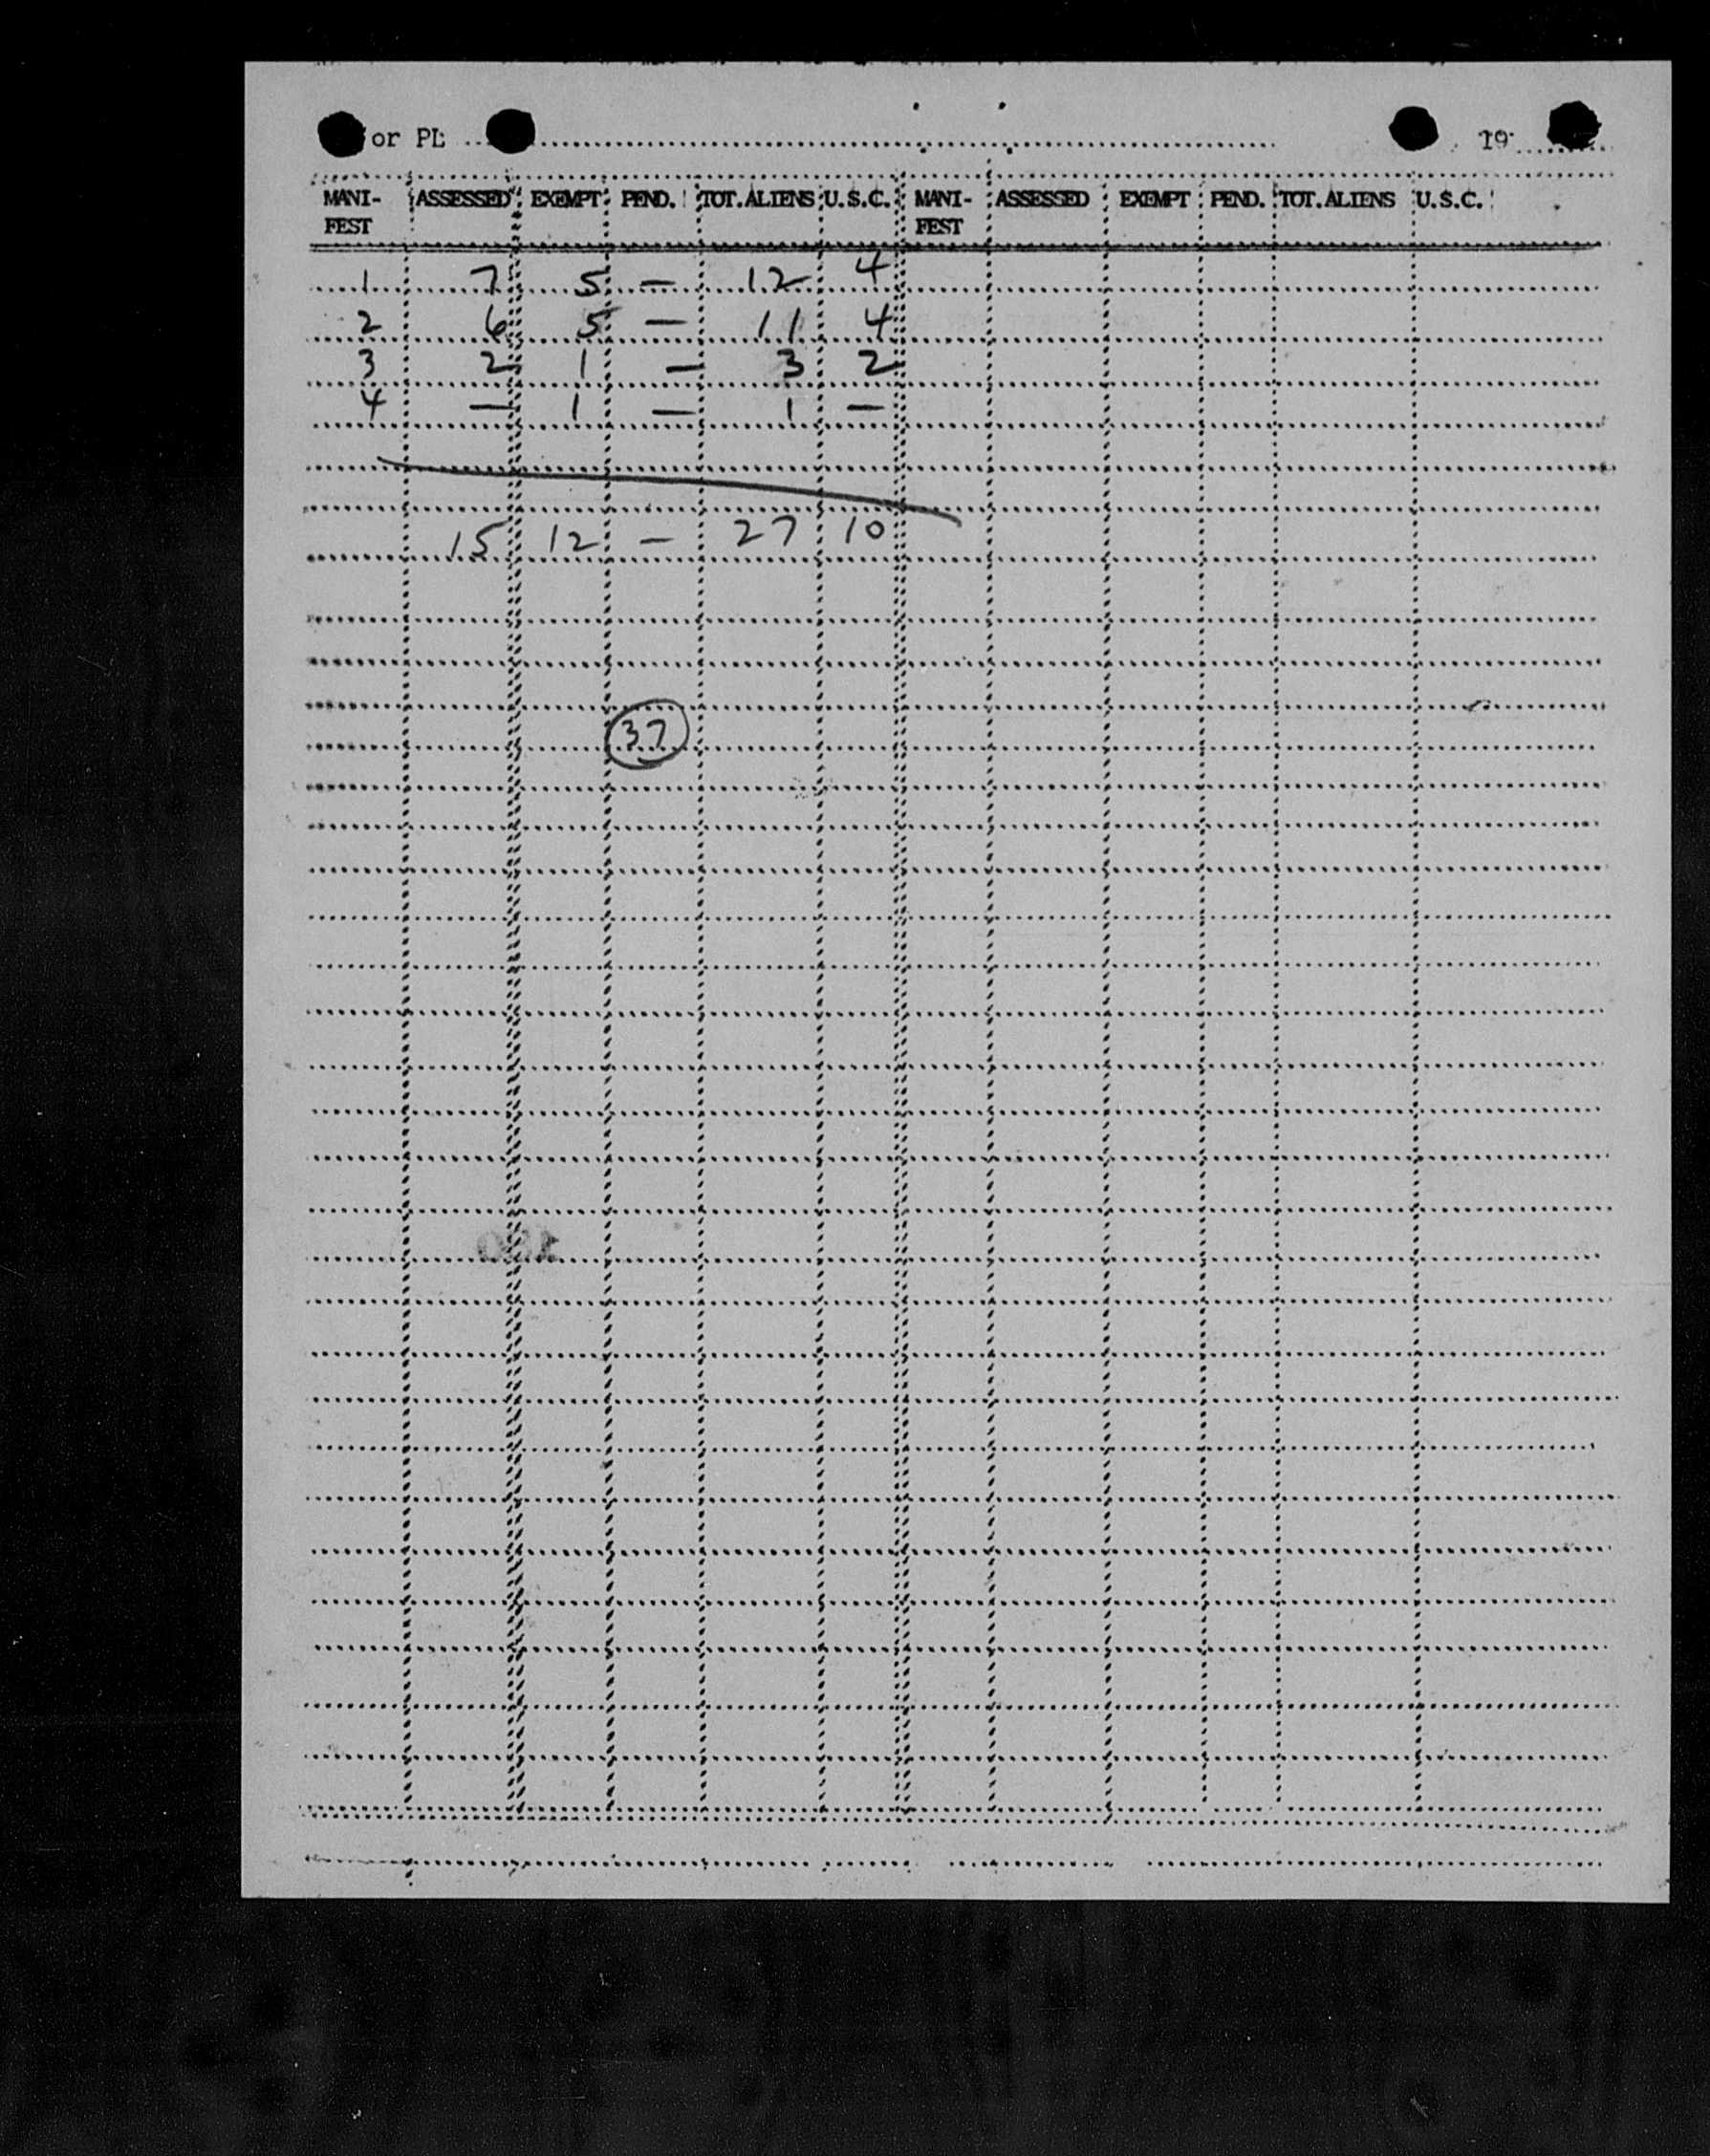 or PL 19
MANI- ASSESSED EXEMPT PEND. TOT. ALIENS U.S.C. MANI- ASSESSED EXEMPT PEND. TOT. ALIENS U.S.C.
FEST FEST
1 7 5 — 12 4
2 6 5 — 11 4
3 2 1 — 3 2
4 — 1 — 1 —
15 12 — 27 10
37